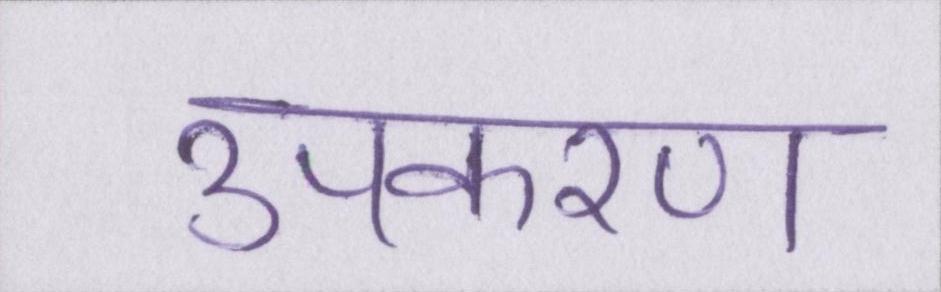 उपकरण